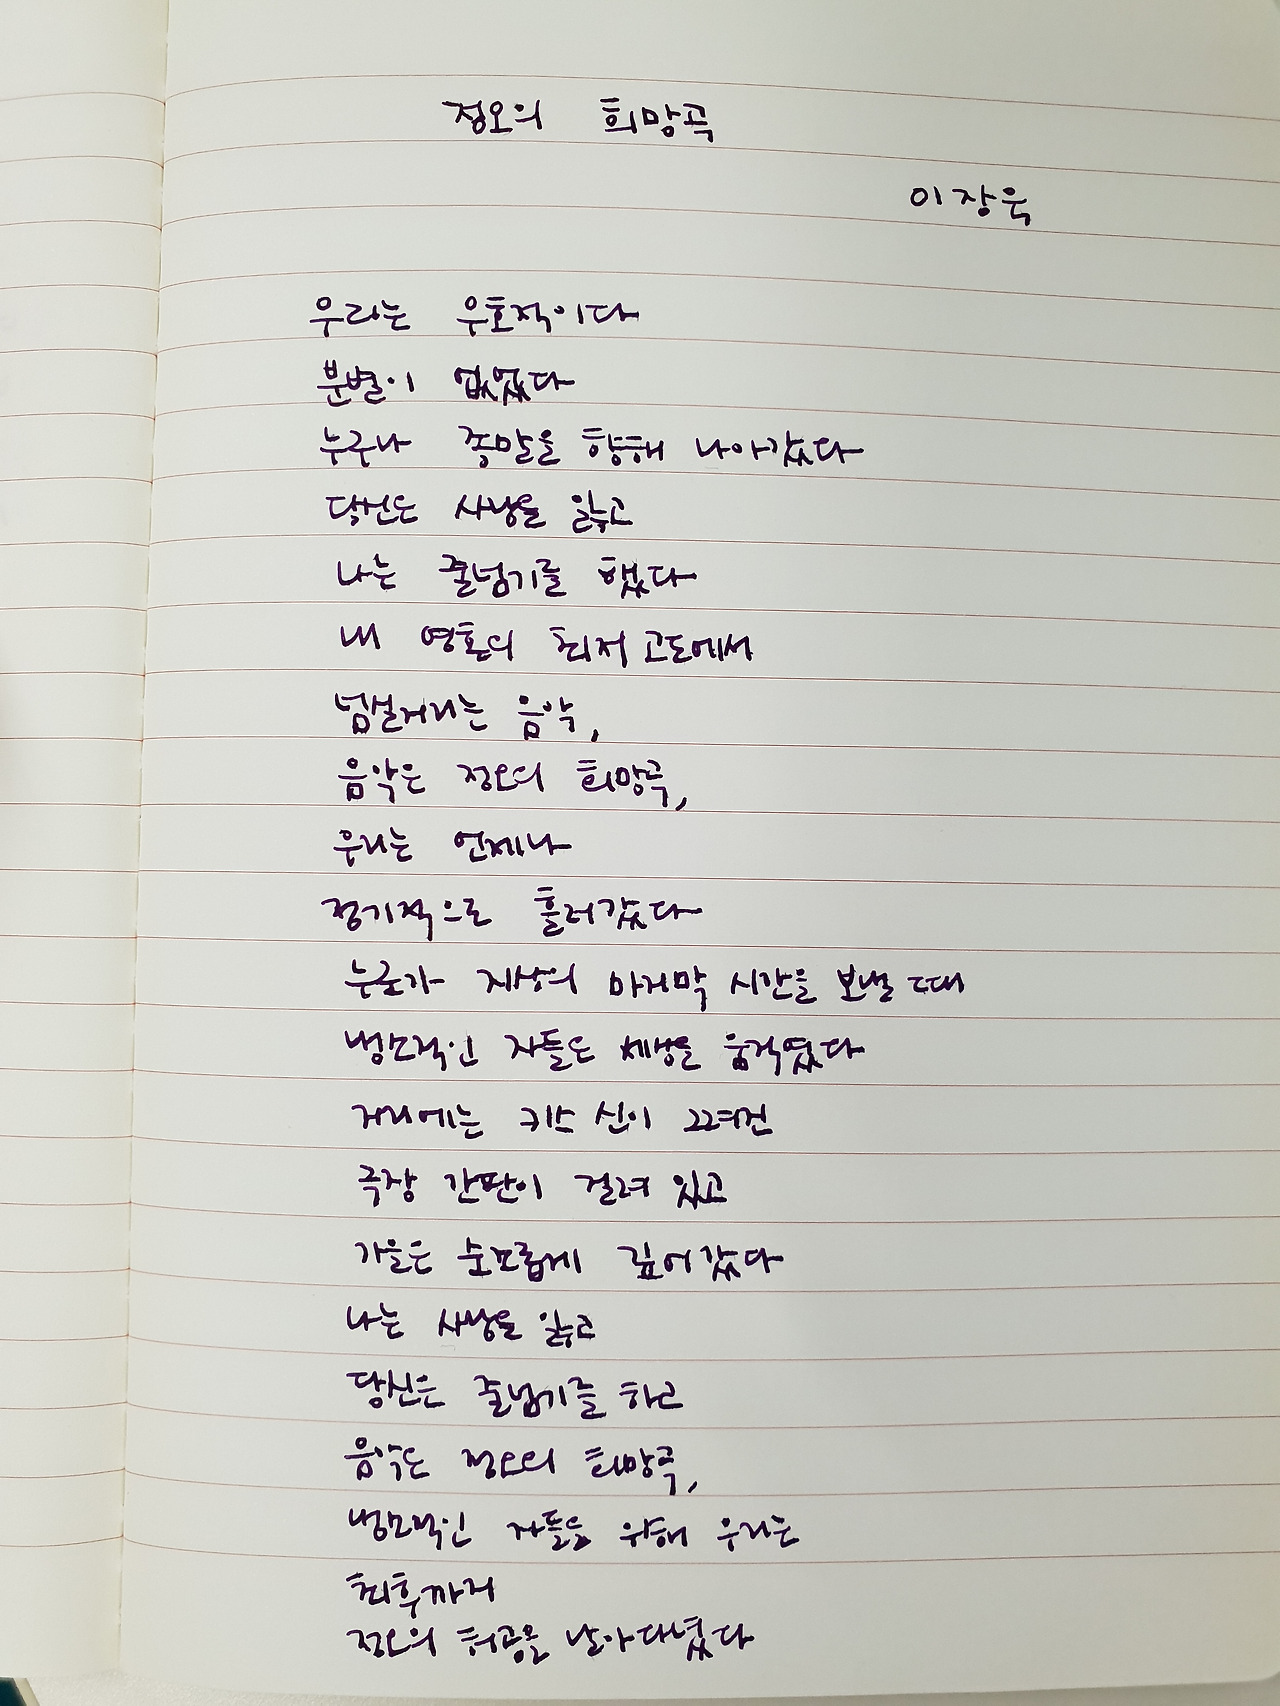 정오의 희망곡
이장욱
우리는 우호적이다
분별이 없었다
누구나 종말을 향해 나아갔다
당신은 사랑을 잃고
나는 줄넘기를 했다
내 영혼의 최저 고도에서
넘실거리는 음악,
음악은 정오의 희망곡,
우리는 언제나
정기적으로 흘러갔다
누군가 지상의 마지막 시간을 보낼 때
냉소적인 자들은 세상을 움직였다
거리에는 키스 신이 그려진
극장 간판이 걸려 있고
가을은 순조롭게 깊어 갔다
나는 사랑을 잃고
당신은 줄넘기를 하고
음악은 정오의 희망곡,
냉소적인 자들을 위해 우리는
최후까지
정오의 허공을 날아다녔다